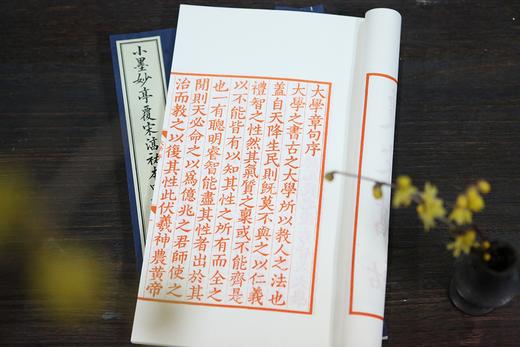 大學章句序
大學之書古之大學所以教人之法也
蓋自天降生民則既莫不與之以仁義
禮智之性然其氣質之稟或不能齊是
以不能皆有以知其性之所有而全之
也一有聰明睿智能盡其性者出於其
閒則天必命之以爲億兆之君師使之
治而教之以復其性此伏羲神農黃帝
小墨妙亭覆宋淳祐本